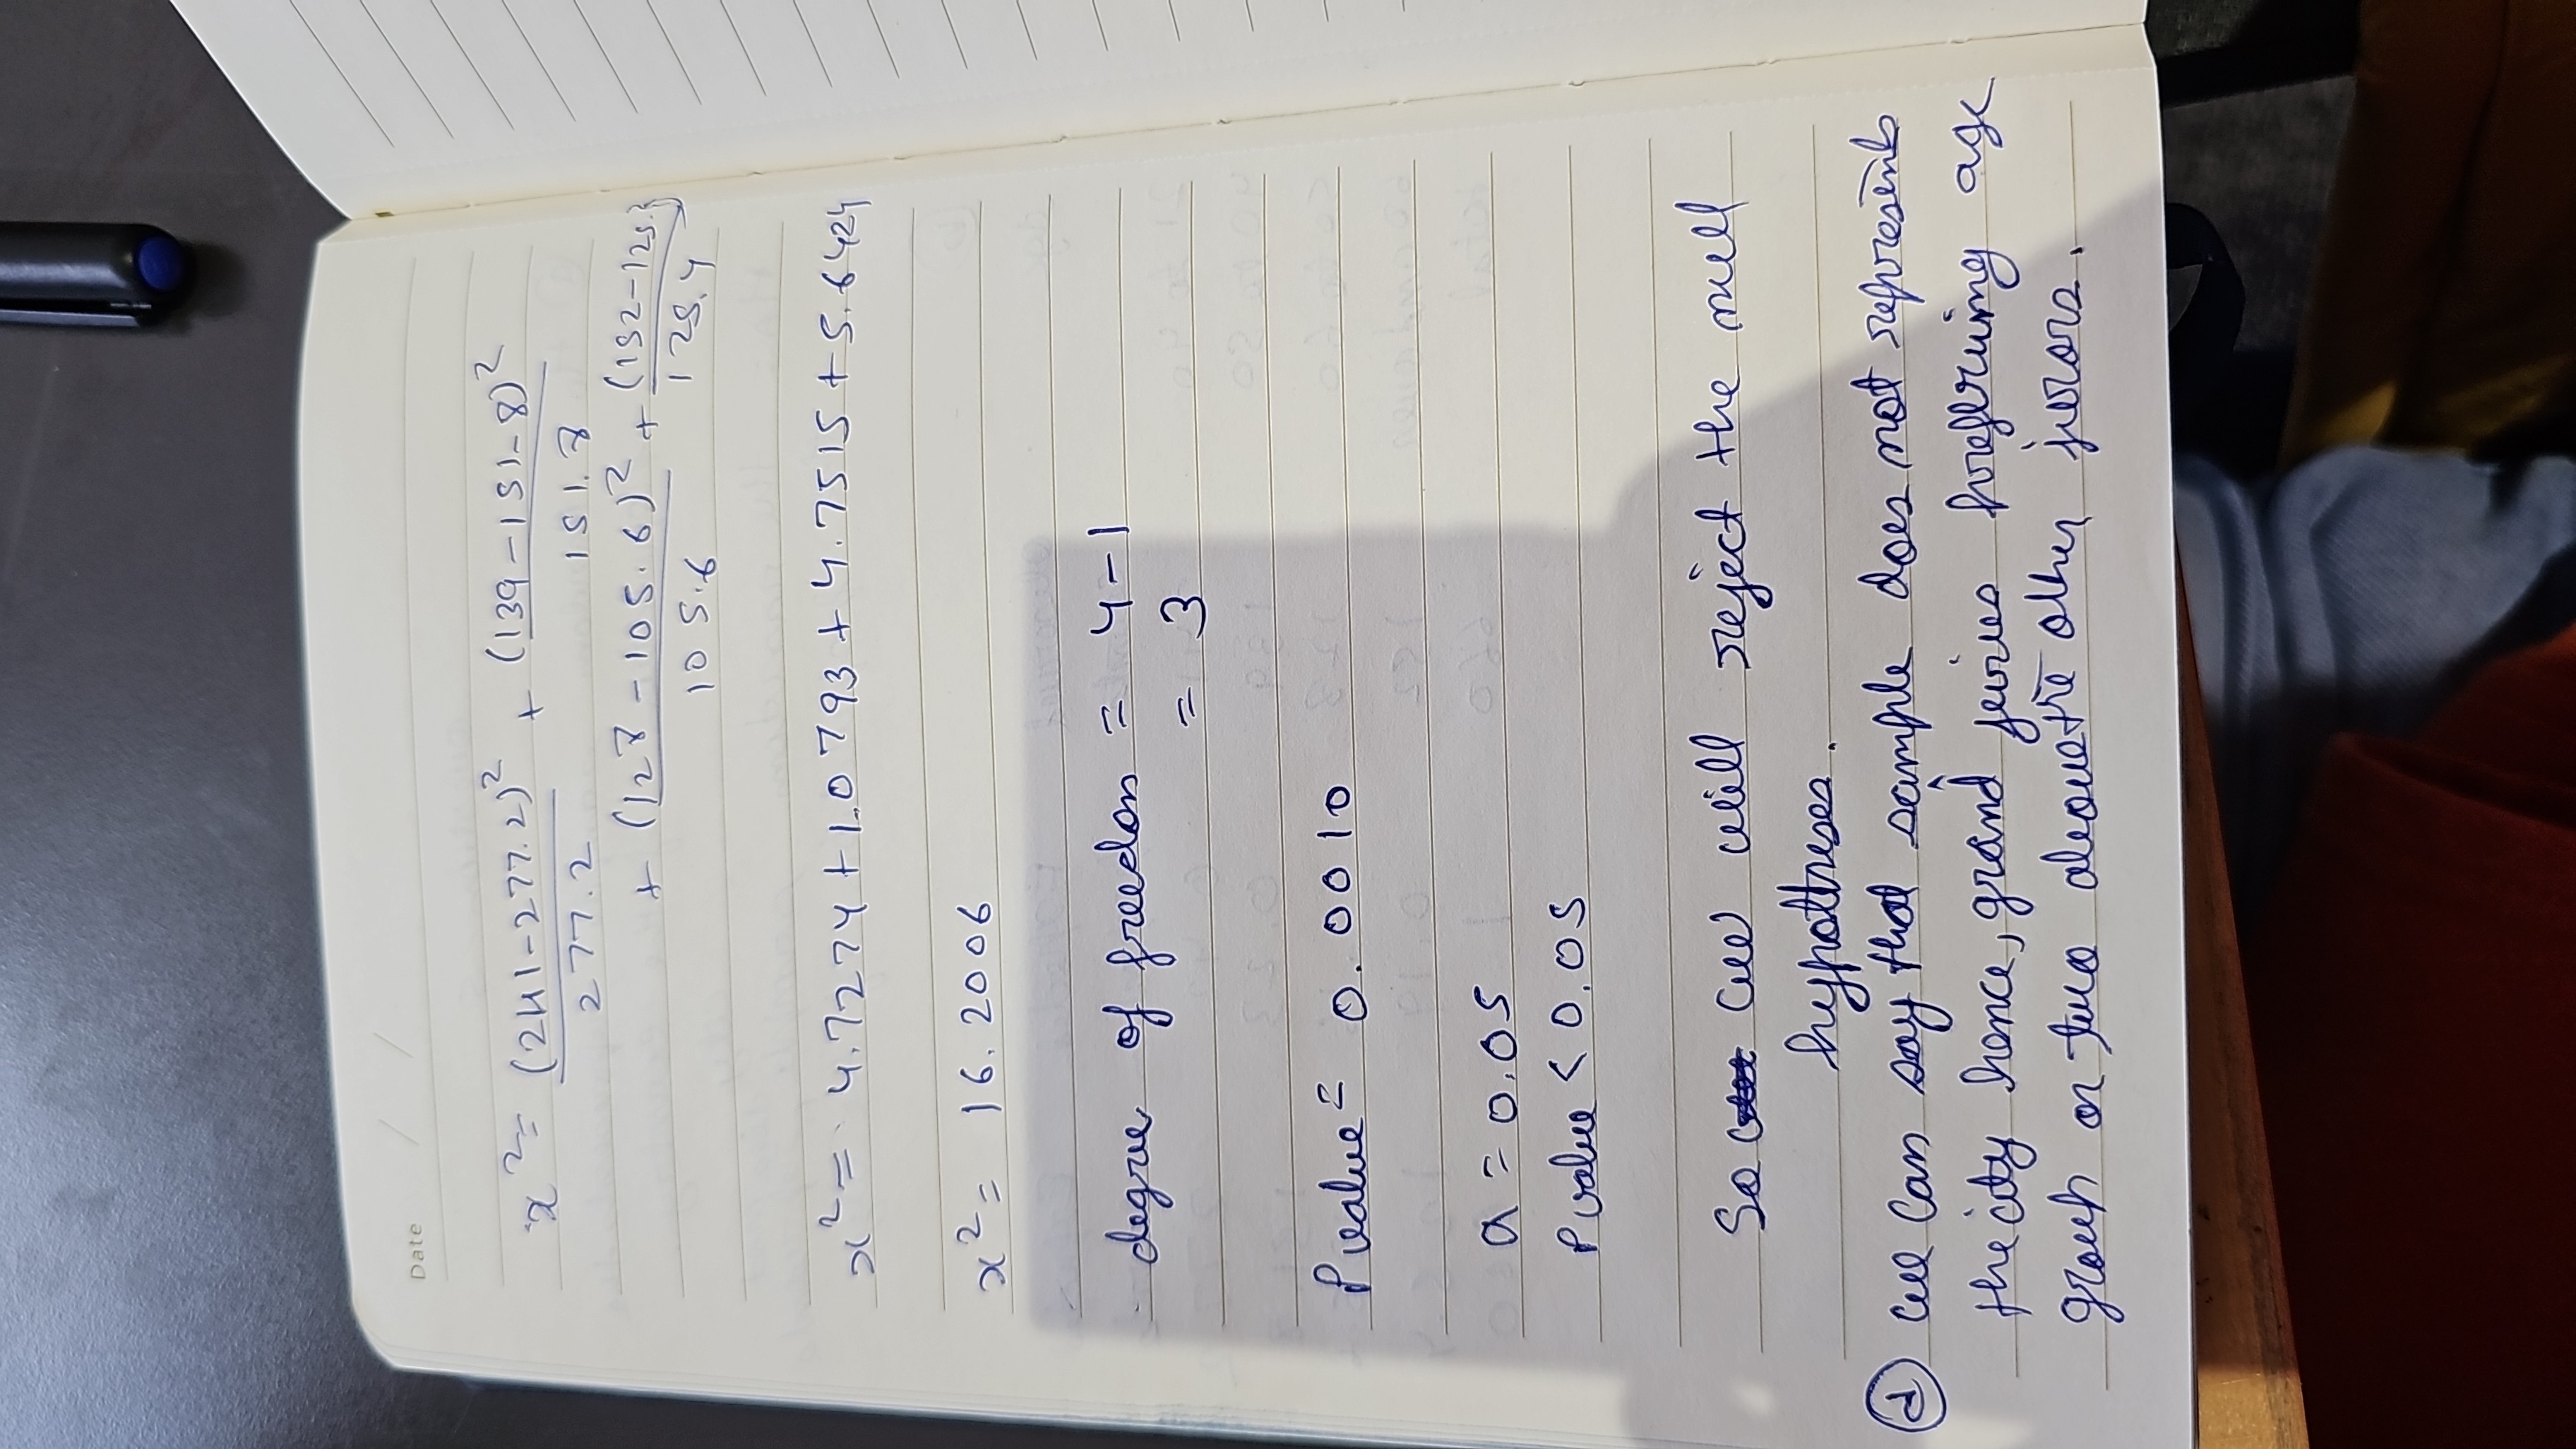 Date / /
x² = (241-277.2)²/277.2 + (139-151.8)²/151.8
+ (128-105.6)²/105.6 + (152-125.)/125.4
x² = 4.7274 + 1.0793 + 4.7515 + 5.6424
x² = 16.2006
degree of freedom = 4-1
= 3
P value = 0.0010
a = 0.05
P value < 0.05
So we will reject the null
hypotheses.
d we can say that sample does not represents
the city hence, grand juries preferring age
group or two above the other jurors.